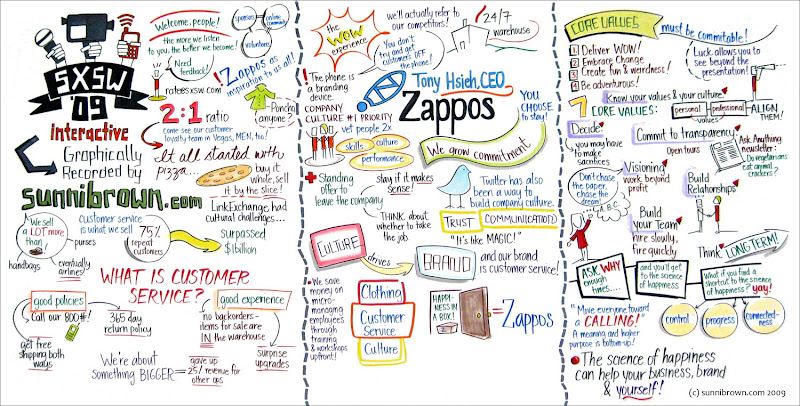 SXSW
'09
interactive
Graphically
Recorded by
sunnibrown.com
Welcome, people!
the more we listen
to you, the better we become!
sponsors
online
community
volunteers
Need
feedback!
rate@sxsw.com
Zappos as
inspiration to us all!
2:1 ratio
come see our customer
loyalty team in Vegas, MEN, too!
Poncho,
anyone?
It all started with
pizza...
buy it
whole, sell
it by the slice!
LinkExchange, had
cultural challenges...
We sell
a LOT more
than!
purses
handbags
eventually
airlines!
Customer service
is what we sell
75%
repeat
customers
surpassed
$1billion
WHAT IS CUSTOMER
SERVICE?
good policies
Call our 800#!
365 day
return policy
get free
shipping both
ways
good experience
no backorders-
items for sale are
IN the warehouse
surprise
upgrades
We're about
something BIGGER
gave up
25% revenue for
other ops
the
WOW
experience
we'll actually refer to
our competitors!
24/7
warehouse
You don't
try and get
customers OFF
the phone!
The phone is
a branding
device.
Tony Hsieh, CEO
Zappos
COMPANY
CULTURE #1 PRIORITY
vet people 2x
skills
culture
performance
YOU
CHOOSE
to stay!
We grow commitment
Standing
offer to
leave the company
stay if it makes
sense!
THINK about
whether to take
the job
Twitter has also
been a way to
build company culture.
TRUST
COMMUNICATION
"It's like MAGIC!"
CULTURE
drives
BRAND
and our brand
is customer service!
We save
money on
micro-
managing
employees
through
training
& workshops
upfront!
Clothing
Customer
Service
Culture
HAPPI-
NESS IN
A BOX!
=Zappos
CORE VALUES
must be commitable!
1 Deliver WOW!
2 Embrace Change
3 Create fun & weirdness!
4 Be adventurous!
Luck allows you to
see beyond the
presentation!
Know your values & your culture.
7
CORE VALUES:
personal
professional
values
ALIGN
THEM!
Decide
you may have
to make
sacrifices
Commit to transparency
Open tours
Ask Anything
newsletter:
Do vegetarians
eat animal
crackers?
Don't chase
the paper,
chase the
dream!
Visioning
work beyond
profit
Build
Relationships
Build
your Team
hire slowly,
fire quickly
Think LONG TERM!
ASK WHY
enough
times...
and you'll get
to the science
of happiness
What if you find
a shortcut to the science
of happiness? yay!
"Move everyone toward
a CALLING!"
A meaning and higher
purpose is bottom-up!
control
progress
connected-
ness
The science of happiness
can help your business, brand
& yourself!
(c) sunnibrown.com 2009